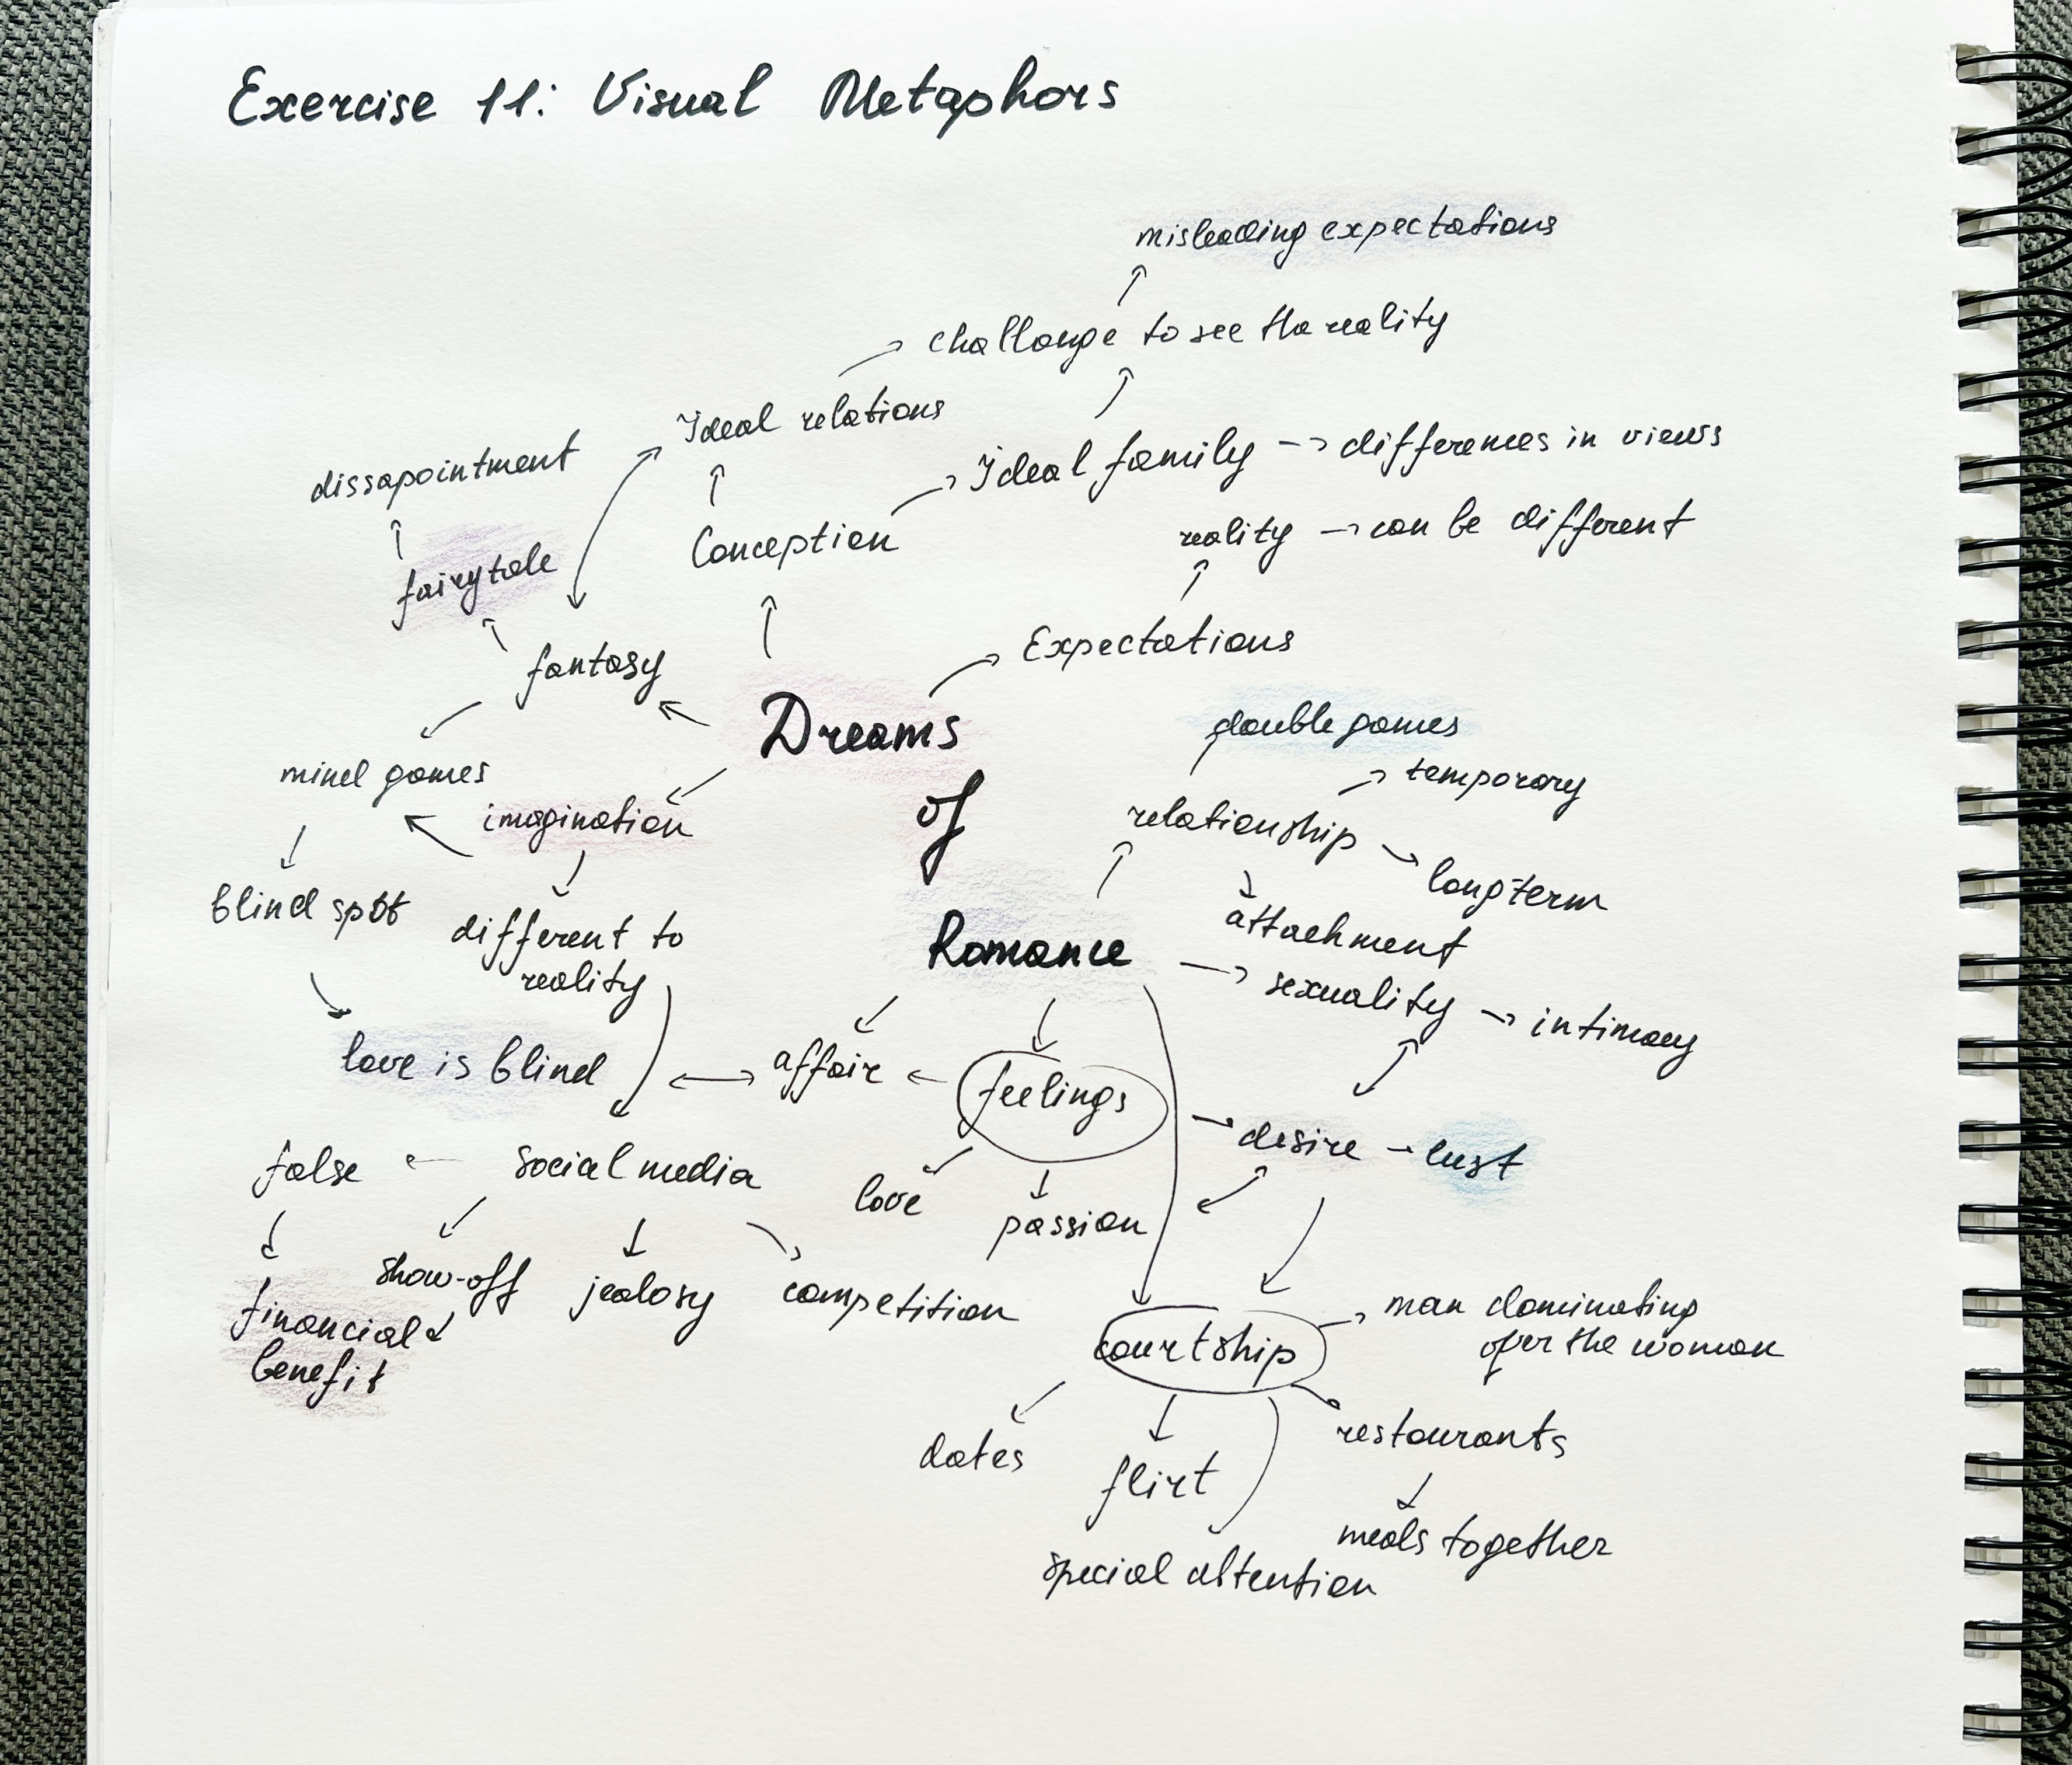 Exercise 11: Visual Metaphors
misleading expectations
challange to see the reality
Ideal relations
dissapointment
Ideal family → differences in views
Conception
reality → can be different
fairytale
Expectations
fantasy
Dreams
double games
mind games
temporary
imagination
of
relationship
longterm
blind spot
different to
reality
attachment
Romance
sexuality → intimacy
love is blind
affair
feelings
desire - lust
false
social media
love
passion
show-off
jealosy
competition
financial
benefit
man dominating
over the woman
courtship
dates
flirt
restaurants
meals together
special attention